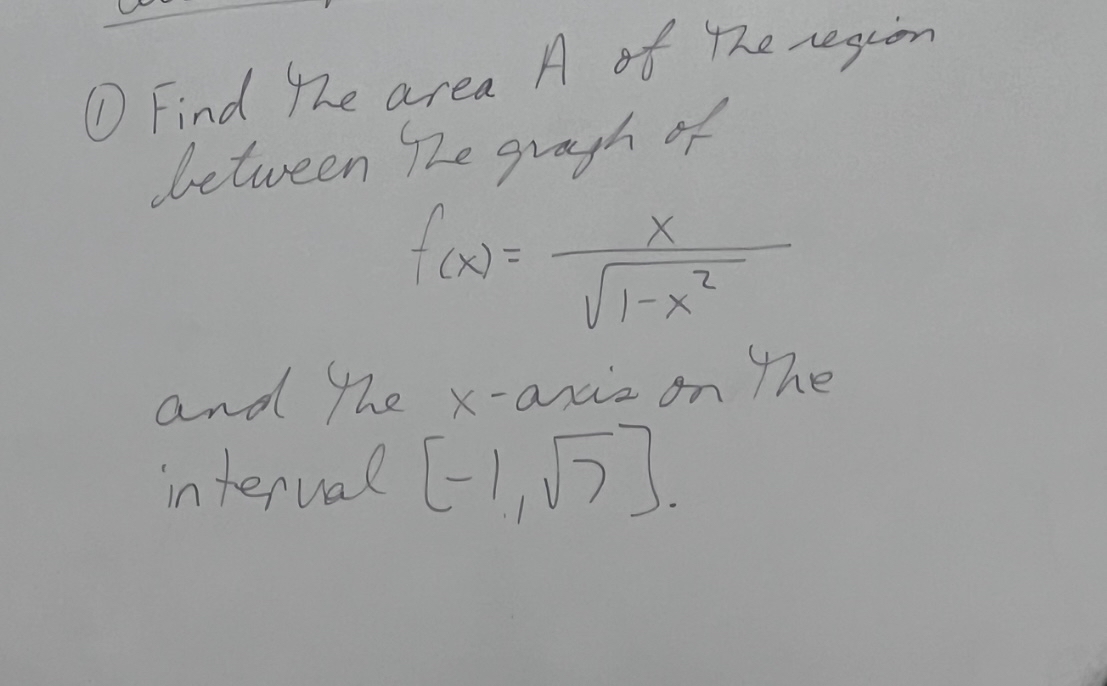 ① Find the area A of the region
between the graph of
f(x) = x / √(1-x²)
and the x-axis on the
interval [-1, √7].